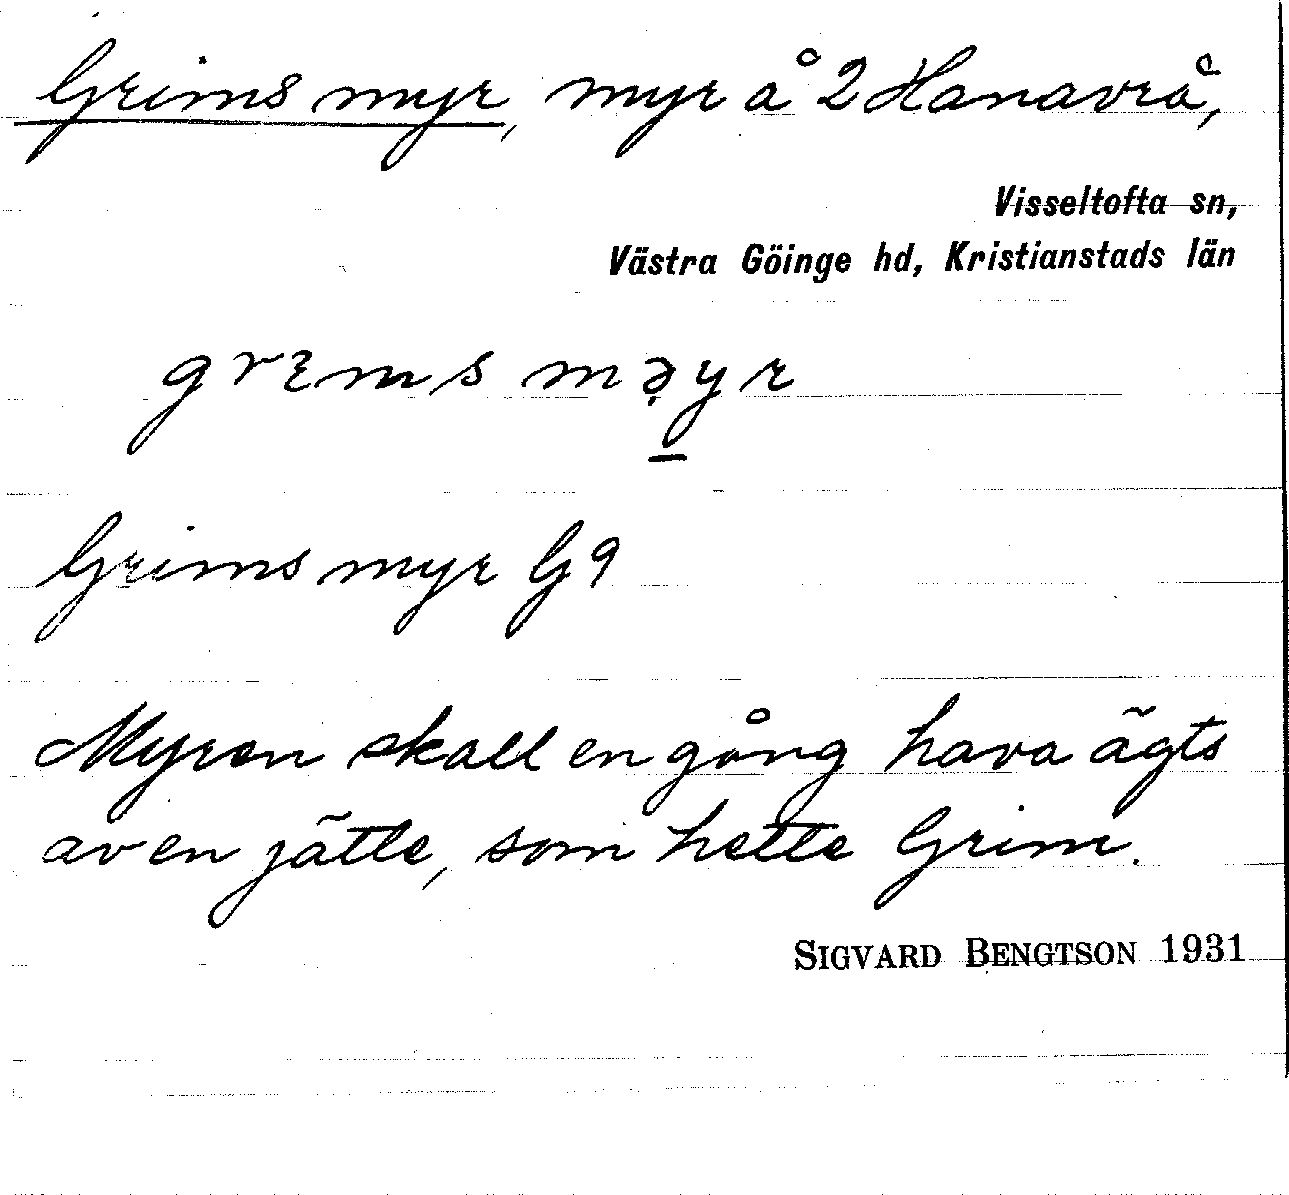 Grims myr, myr å 2 Hanavrå,
Visseltofta sn,
Västra Göinge hd, Kristianstads län
Grims myr G9
Myren skall en gång hava ägts
av en jätte, som hette Grim.
SIGVARD BENGTSON 1931